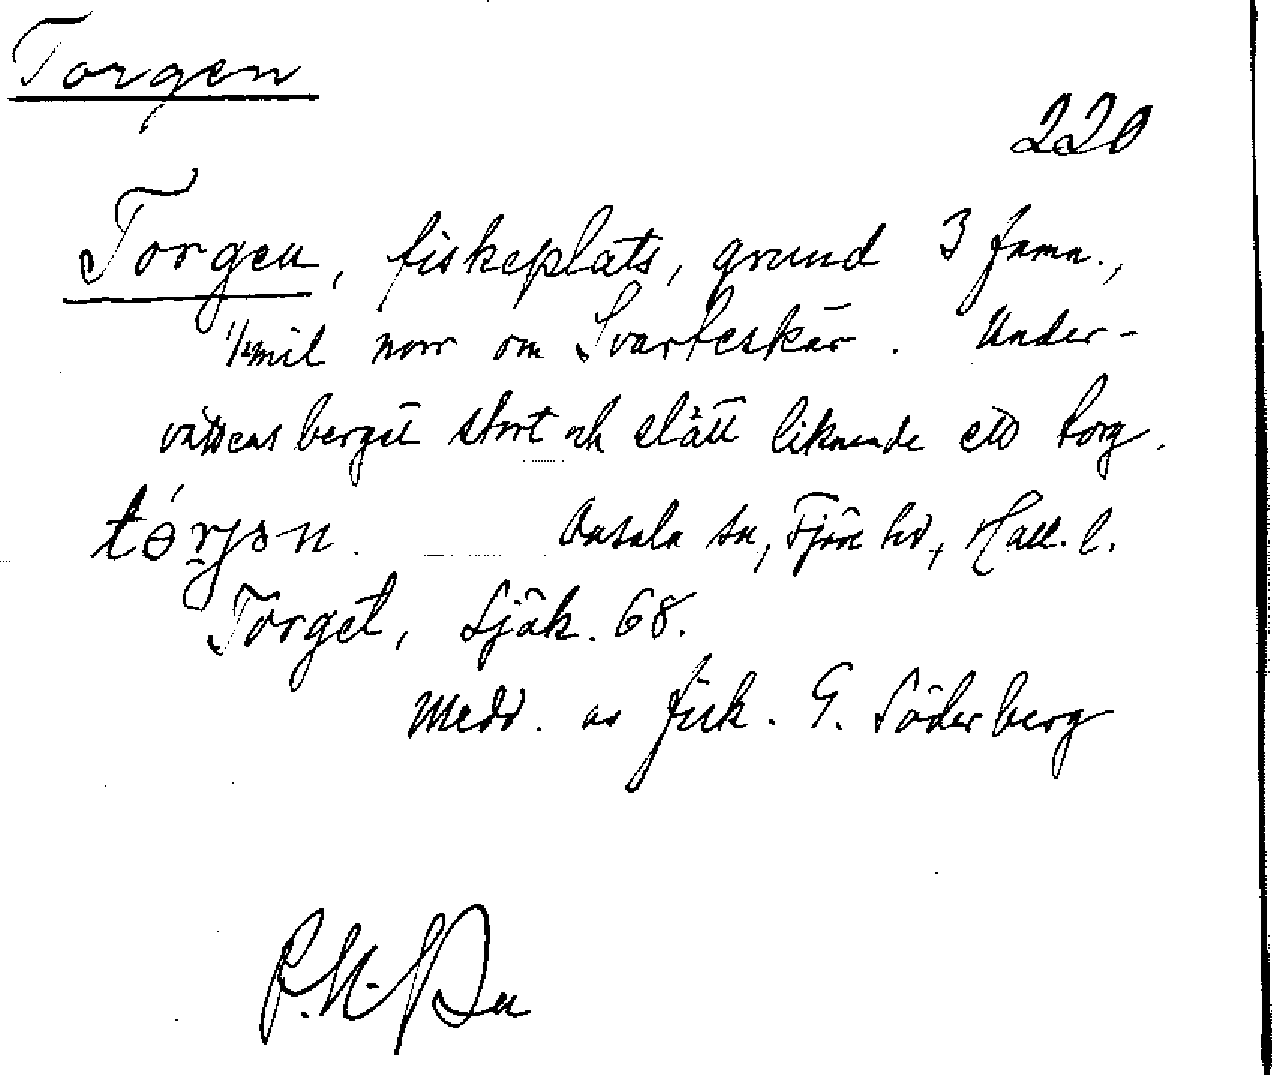 Torgen
220
Torgen, fiskeplats, grund 3 famn.,
1/2 mil norr om Svarteskär. Under-
vattens berget stort och slätt liknande ett torg.
tórjən. Onsala sn, Fjäre hd, Hall. l.
Torget, Sjök. 68.
Medd. av fisk. G. Söderberg